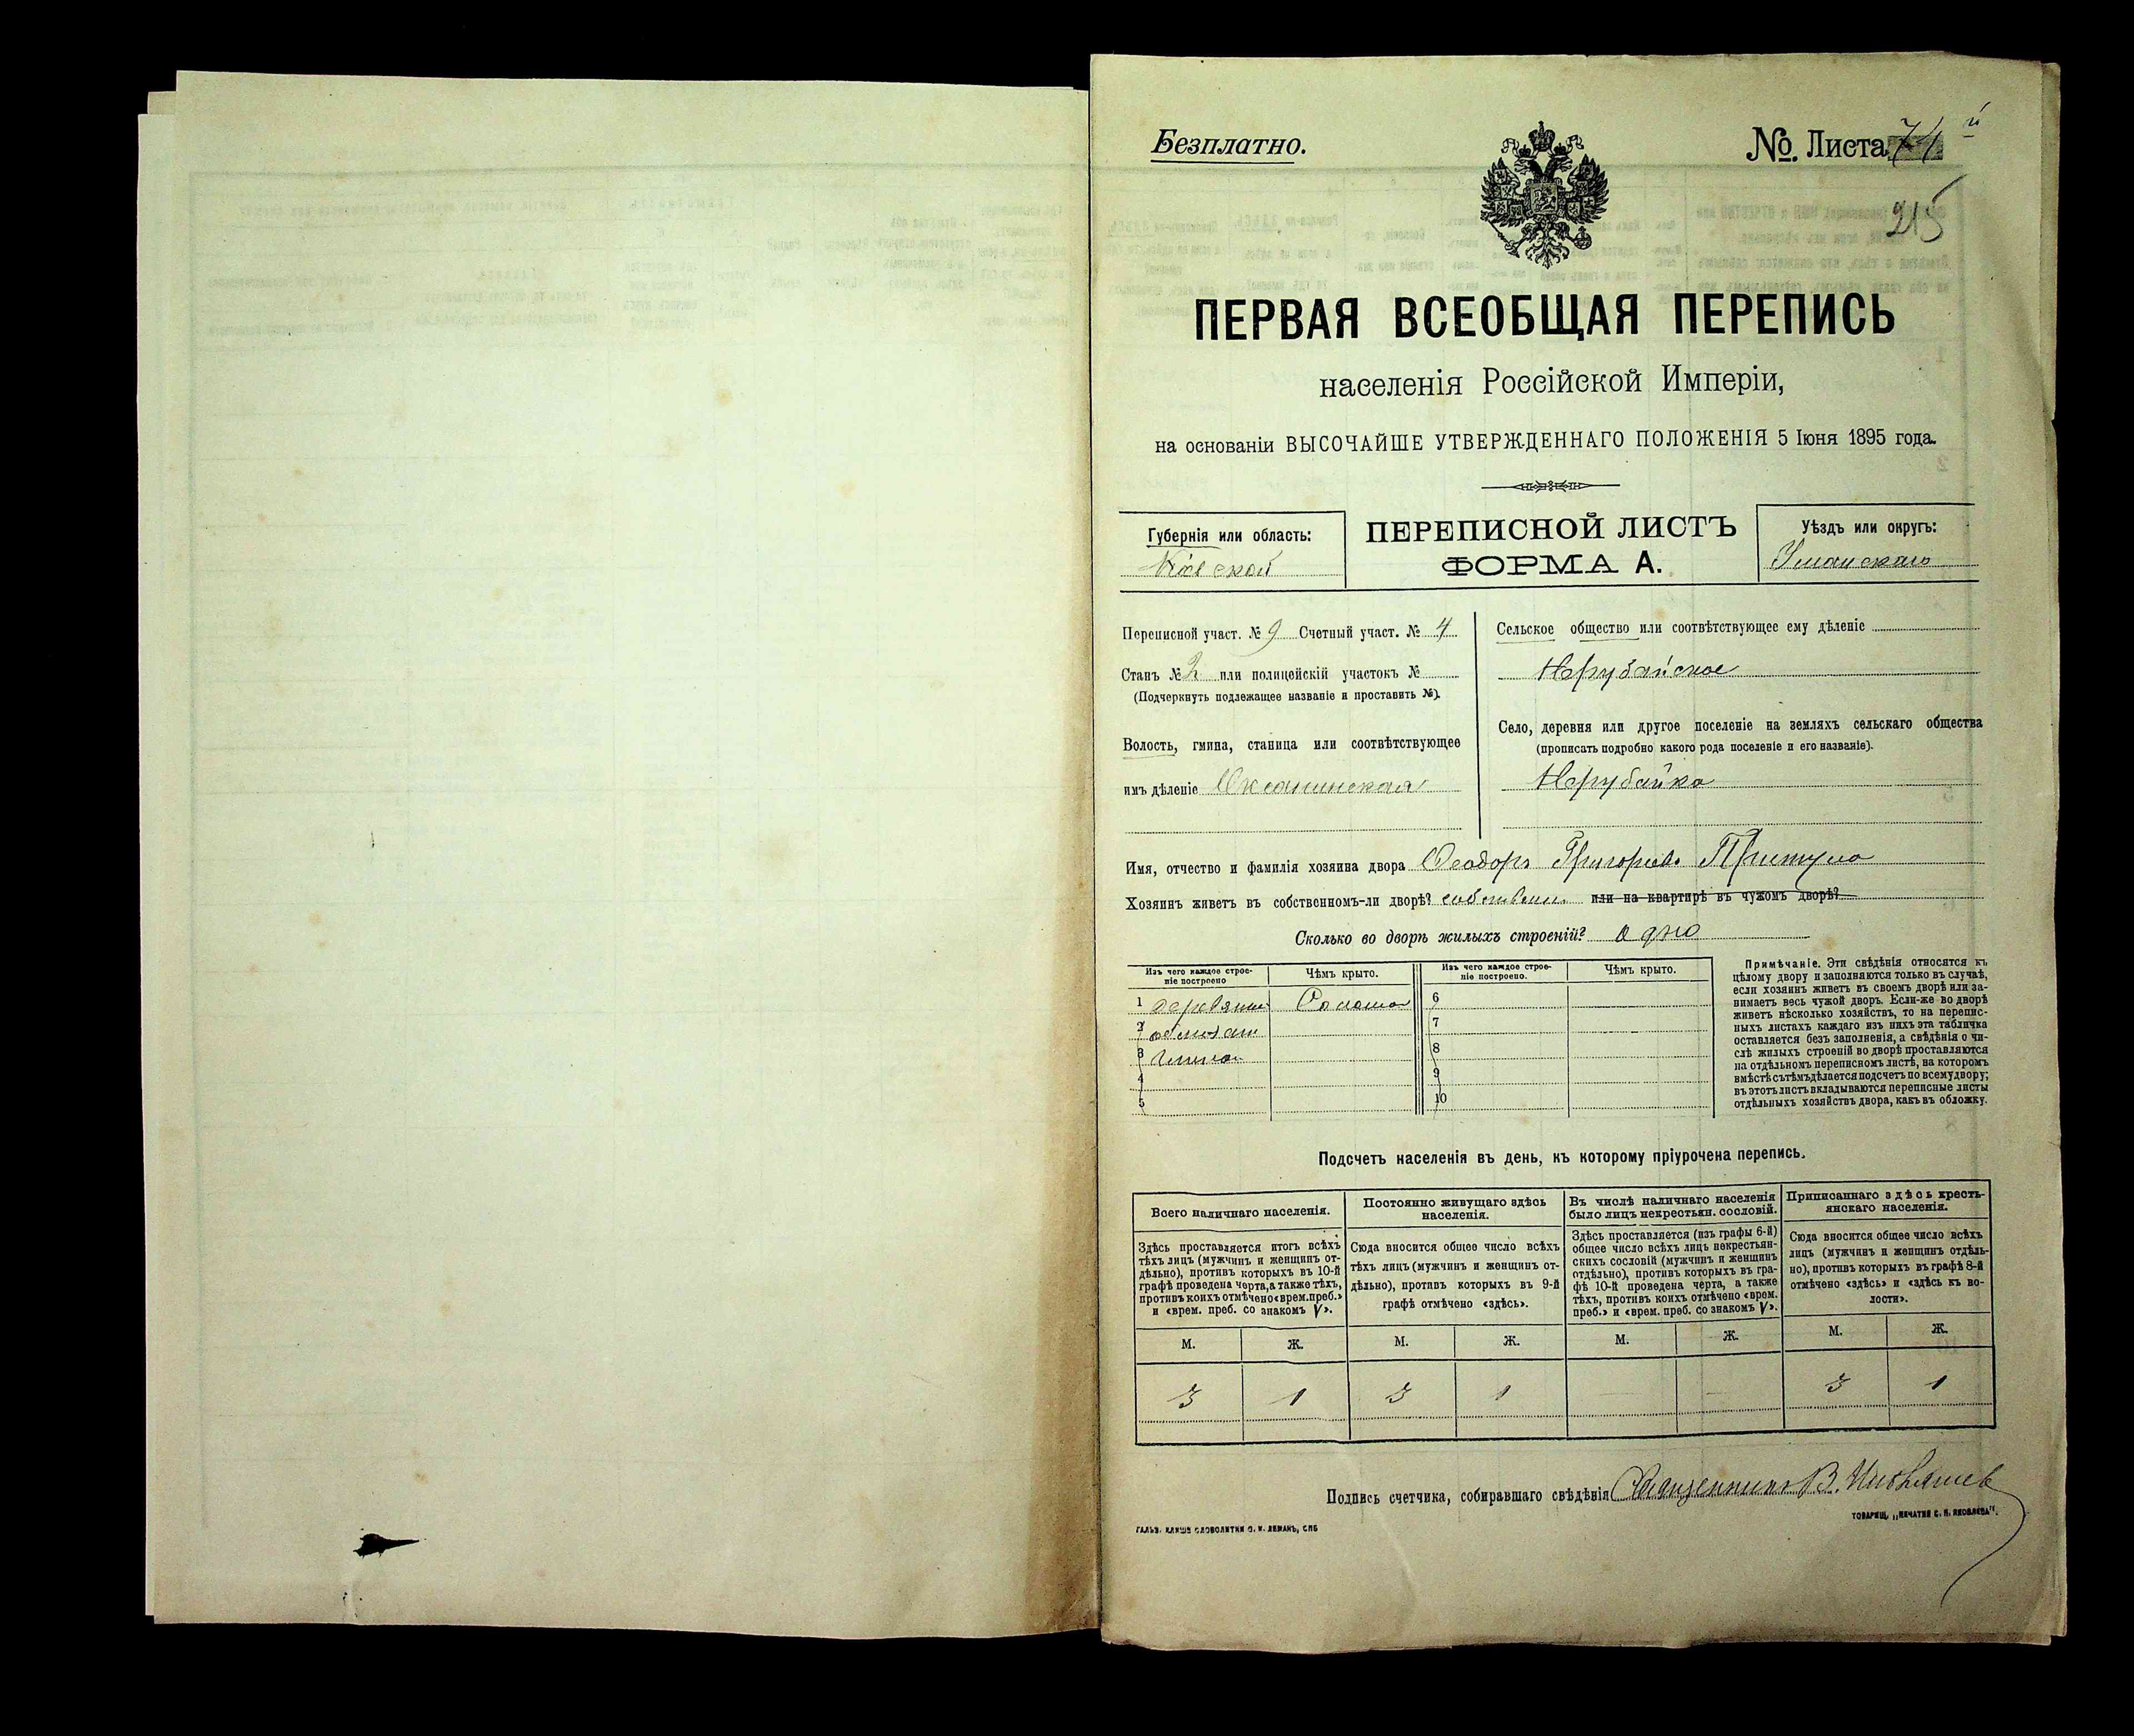 Безплатно.
№. Листа 74 й
215
ПЕРВАЯ ВСЕОБЩАЯ ПЕРЕПИСЬ
населенія Россійской Имперіи,
на основаніи ВЫСОЧАЙШЕ УТВЕРЖДЕННАГО ПОЛОЖЕНІЯ 5 Іюня 1895 года.
Губернія или область:
Кіевской
ПЕРЕПИСНОЙ ЛИСТЪ
ФОРМА А.
Уѣздъ или округъ:
Уманскаго
Переписной участ. № 9 Счетный участ. № 4
Станъ № 2 или полицейскій участокъ №
(Подчеркнуть подлежащее названіе и проставить №).
Волость, гмина, станица или соотвѣтствующее
имъ дѣленіе Оксанинская
Сельское общество или соотвѣтствующее ему дѣленіе
Нерубайское
Село, деревня или другое поселеніе на земляхъ сельскаго общества
(прописать подробно какого рода поселеніе и его названіе).
Нерубайка
Имя, отчество и фамилія хозяина двора Ѳеодоръ Григорьевъ Притула
Хозяинъ живетъ въ собственномъ-ли дворѣ? собствен. или на квартирѣ въ чужомъ дворѣ?
Сколько во дворѣ жилыхъ строеній? одно
Изъ чего каждое строе-
ніе построено
Чѣмъ крыто.
Изъ чего каждое строе-
ніе построено.
Чѣмъ крыто.
1 деревянн. Солома 6
2 7
3 глиною 8
4 9
5 10
Примѣчаніе. Эти свѣдѣнія относятся къ
цѣлому двору и заполняются только въ случаѣ,
если хозяинъ живетъ въ своемъ дворѣ или за-
нимаетъ весь чужой дворъ. Если-же во дворѣ
живетъ нѣсколько хозяйствъ, то на перепис-
ныхъ листахъ каждаго изъ нихъ эта табличка
оставляется безъ заполненія, а свѣдѣнія о чи-
слѣ жилыхъ строеній во дворѣ проставляются
на отдѣльномъ переписномъ листѣ, на которомъ
вмѣстѣ съ тѣмъ дѣлается подсчетъ по всему двору;
въ этотъ листъ вкладываются переписные листы
отдѣльныхъ хозяйствъ двора, какъ въ обложку.
Подсчетъ населенія въ день, къ которому пріурочена перепись.
Всего наличнаго населенія.
Здѣсь проставляется итогъ всѣхъ
тѣхъ лицъ (мужчинъ и женщинъ от-
дѣльно), противъ которыхъ въ 10-й
графѣ проведена черта, а также тѣхъ,
противъ коихъ отмѣчено «врем. преб.»
и «врем. преб. со знакомъ V».
Постоянно живущаго здѣсь
населенія.
Сюда вносится общее число всѣхъ
тѣхъ лицъ (мужчинъ и женщинъ от-
дѣльно), противъ которыхъ въ 9-й
графѣ отмѣчено «здѣсь».
Въ числѣ наличнаго населенія
было лицъ некрестьян. сословій.
Здѣсь проставляется (изъ графы 6-й)
общее число всѣхъ лицъ некрестьян-
скихъ сословій (мужчинъ и женщинъ
отдѣльно), противъ которыхъ въ гра-
фѣ 10-й проведена черта, а также
тѣхъ, противъ коихъ отмѣчено «врем.
преб.» и «врем. преб. со знакомъ V».
Приписаннаго здѣсь кресть-
янскаго населенія.
Сюда вносится общее число всѣхъ
лицъ (мужчинъ и женщинъ отдѣль-
но), противъ которыхъ въ графѣ 8-й
отмѣчено «здѣсь» и «здѣсь къ во-
лости».
М. Ж. М. Ж. М. Ж. М. Ж.
3 1 3 1 — — 3 1
Подпись счетчика, собиравшаго свѣдѣнія Священникъ В.
ГАЛЬВ. КЛИШЕ СЛОВОЛИТНИ О. И. ЛЕМАНЪ, СПБ
ТОВАРИЩ. „ПЕЧАТНЯ С. П. ЯКОВЛЕВА".